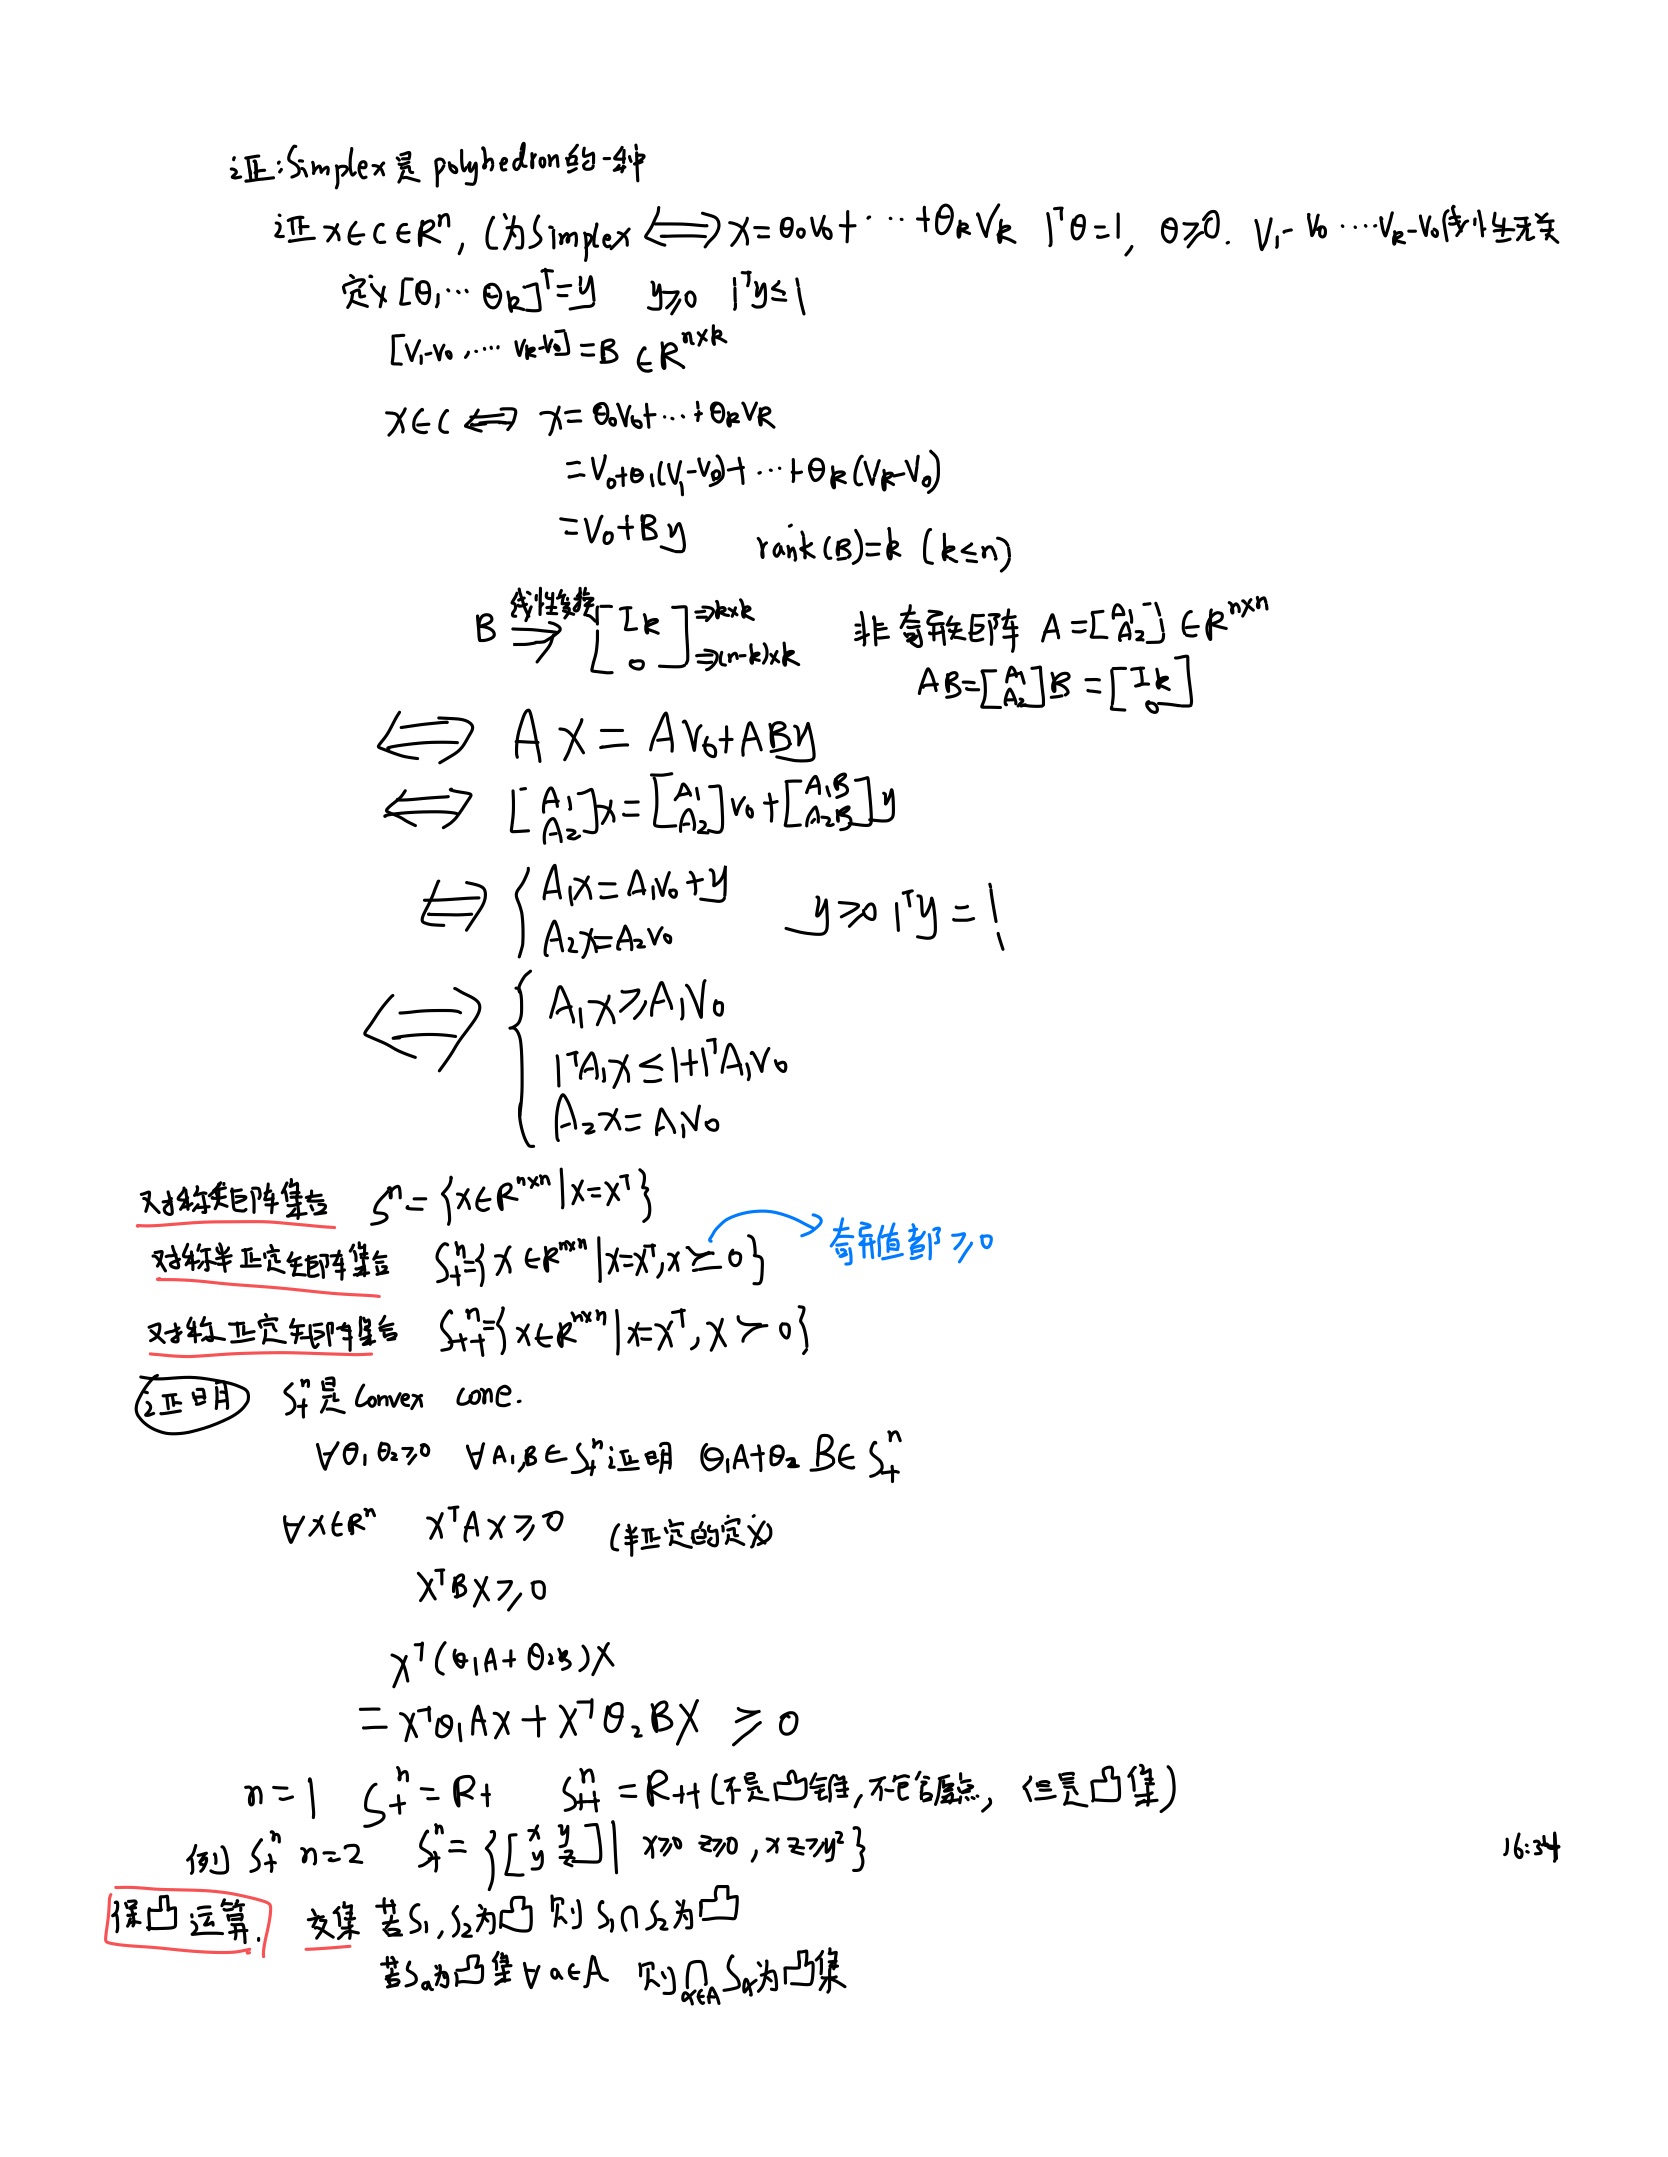 证:Simplex是 polyhedron的一种
证 x∈C∈Rⁿ, C为Simplex ⟺ x=θ₀V₀+⋯+θₖVₖ 1ᵀθ=1, θ≥0. V₁-V₀ ⋯Vₖ-V₀线性无关
定义 [θ₁⋯θₖ]ᵀ=y y≥0 1ᵀy≤1
[V₁-V₀,⋯ Vₖ-V₀]=B ∈Rⁿˣᵏ
x∈C ⟺ x=θ₀V₀+⋯+θₖVₖ
=V₀+θ₁(V₁-V₀)+⋯+θₖ(Vₖ-V₀)
=V₀+By rank(B)=k (k≤n)
B 线性变换⇒ [Iₖ; 0] ⇒k×k ⇒(n-k)×k 非奇异矩阵 A=[A₁; A₂]∈Rⁿˣⁿ
AB=[A₁; A₂]B=[Iₖ; 0]
⟺ Ax=AV₀+ABy
⟺ [A₁; A₂]x=[A₁; A₂]V₀+[A₁B; A₂B]y
⟺ { A₁x=A₁V₀+y
A₂x=A₂V₀ y≥0 1ᵀy=1
⟺ { A₁x≥A₁V₀
1ᵀA₁x≤1+1ᵀA₁V₀
A₂x=A₁V₀
对称矩阵集合 Sⁿ={x∈Rⁿˣⁿ|x=xᵀ}
对称半正定矩阵集合 S₊ⁿ={x∈Rⁿˣⁿ|x=xᵀ,x⪰0} 奇异值都≥0
对称正定矩阵集合 S₊₊ⁿ={x∈Rⁿˣⁿ|x=xᵀ,x≻0}
证明 S₊ⁿ是 Convex cone.
∀θ₁θ₂≥0 ∀A,B∈S₊ⁿ证明 θ₁A+θ₂B∈S₊ⁿ
∀x∈Rⁿ xᵀAx≥0 (半正定的定义)
xᵀBx≥0
xᵀ(θ₁A+θ₂B)x
=xᵀθ₁Ax+xᵀθ₂Bx ≥0
n=1 S₊ⁿ=R₊ S₊₊ⁿ=R₊₊(不是凸锥,不包含原点, 但是凸集)
例 S₊ⁿ n=2 S₊ⁿ={[x y; y z]| x≥0 z≥0, xz≥y²}
16:34
保凸运算. 交集 若S₁,S₂为凸 则 S₁∩S₂为凸
若Sₐ为凸集∀a∈A 则∩_{α∈A}S_α为凸集